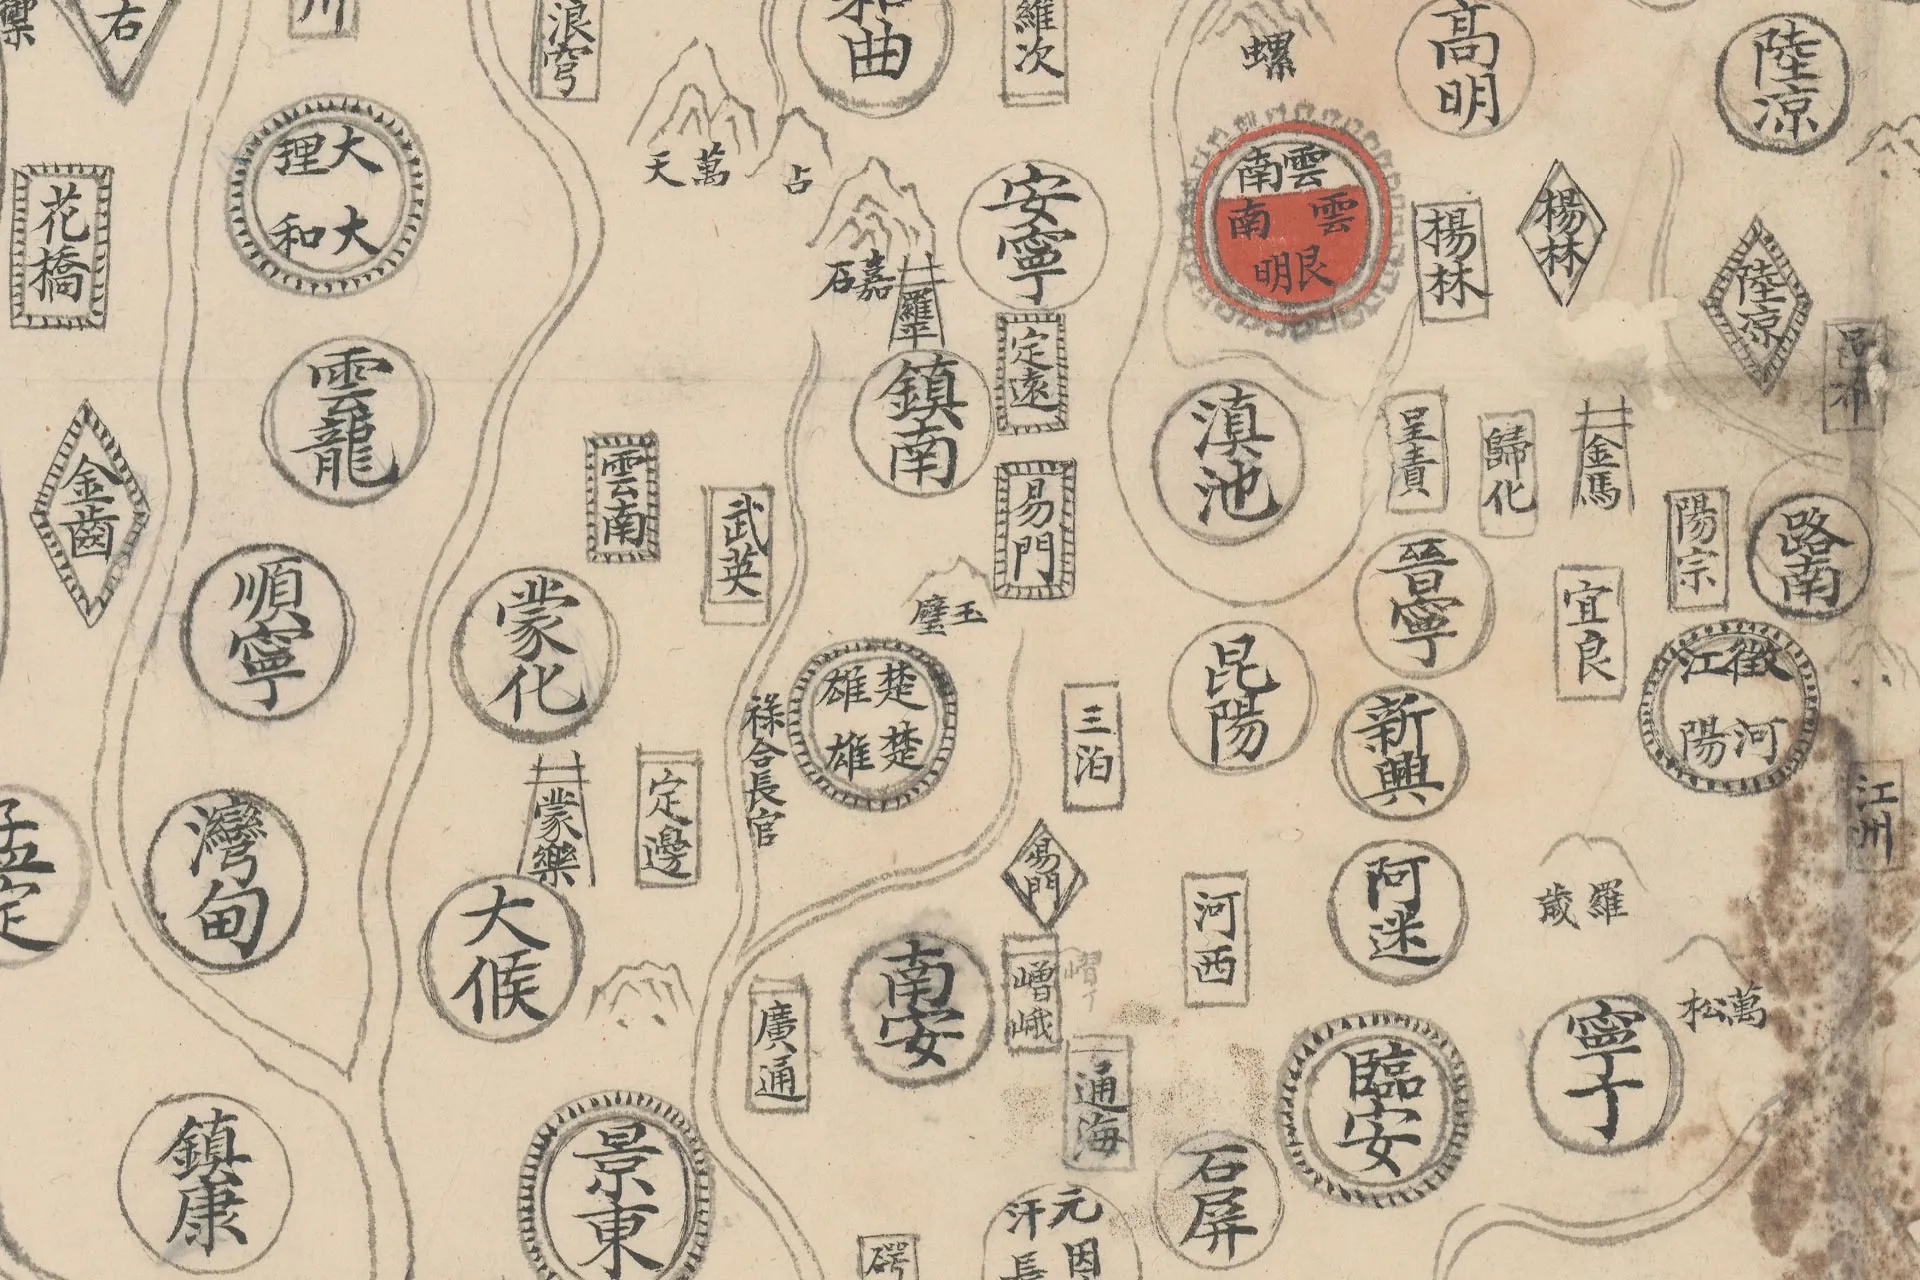 右
川
浪穹
和曲
羅次
螺
高明
陸凉
大理
大和
花橋
萬
天
占
嘉
石
安寧
雲南
雲南
昆明
楊林
楊林
陸凉
羅平
定遠
鎮南
雲龍
金齒
雲南
武英
易門
滇池
呈貢
歸化
金馬
陽宗
路南
順寧
蒙化
玉
璧
楚雄
楚雄
祿合長官
三泊
昆陽
晉寧
新興
宜良
徵江
河陽
江州
孟定
灣甸
蒙樂
定邊
大候
易門
河西
阿迷
羅
歲
萬
松
廣通
南安
嶍峨
通海
臨安
寧
鎮康
景東
元
汗
因
長
石屏